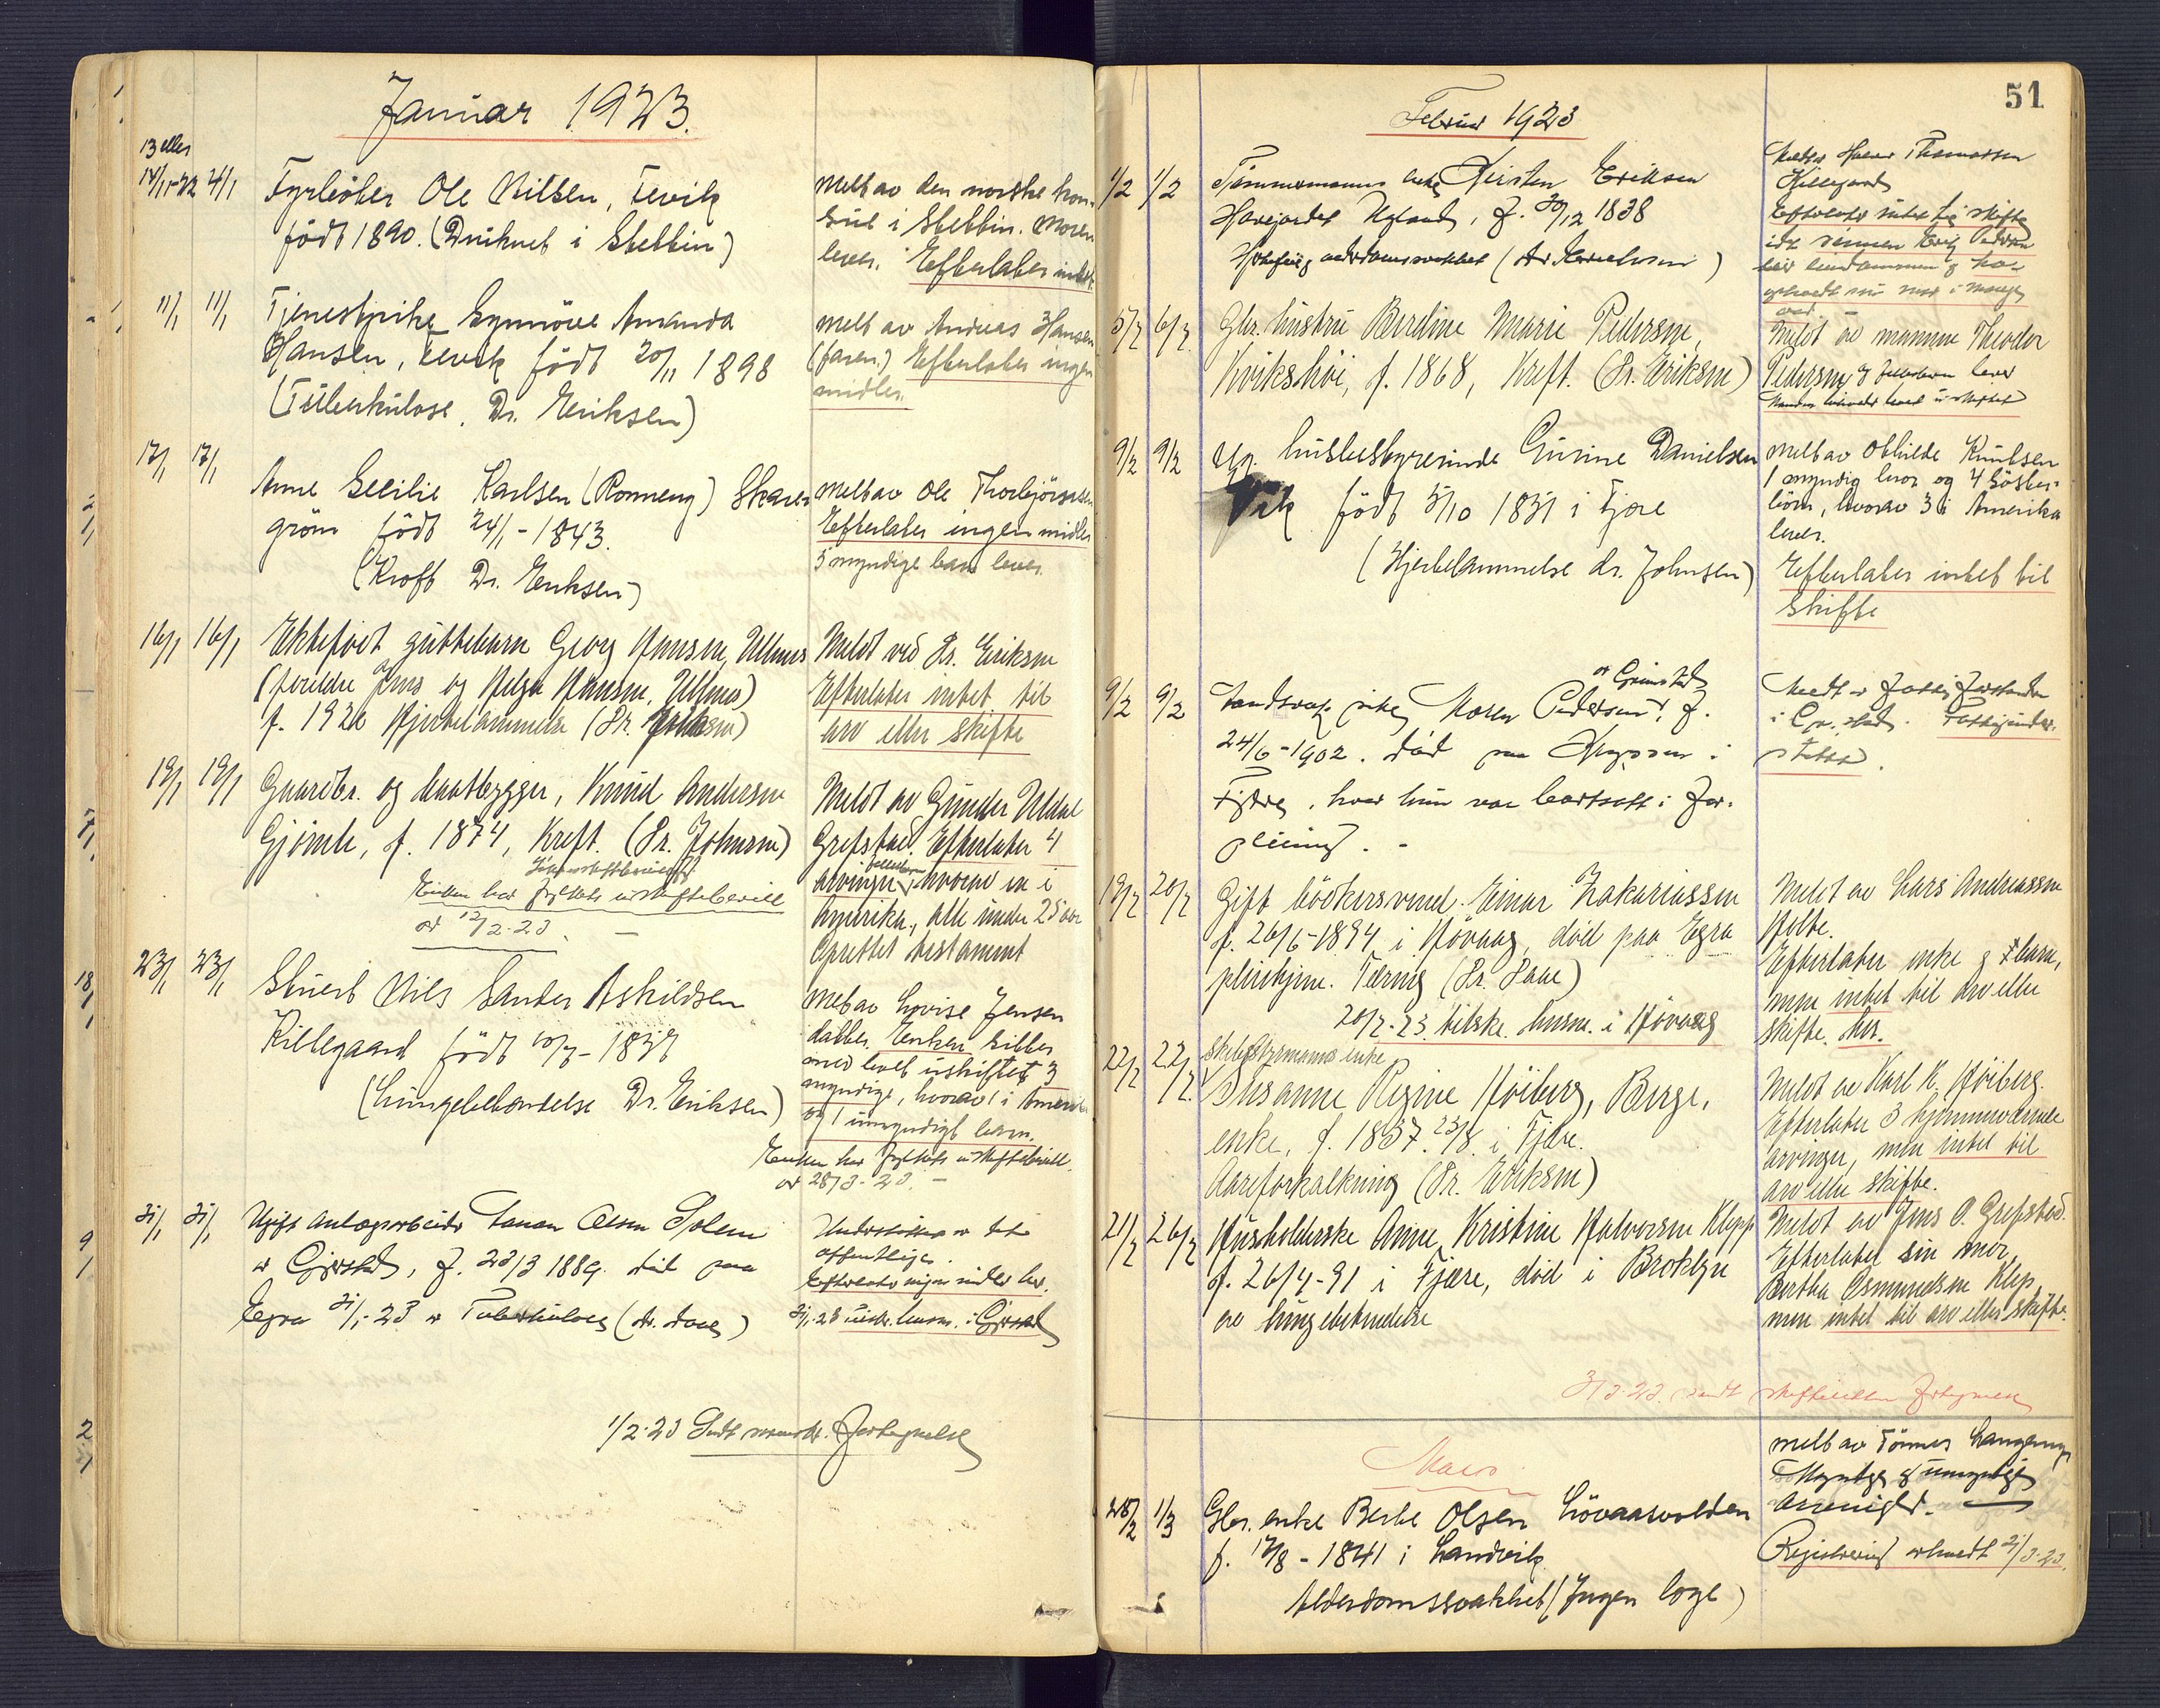 Januar 1923.
13 eller
14/11-22 4/1 Fyrböter Ole Nilsen, Fevik
født 1890. (Druknet i Stettin)
melt av den norske kon-
sul i Stettin. Moren
lever. Efterlater intet.
11/1 11/1 Tjenestpike Synnöve Amanda
Hansen, Fevik født 20/11 1898
(Tuberkulose, Dr. Eriksen)
melt av Andreas Hansen
(faren.) Efterlater ingen
midler.
17/1 17/1
Anne Cecilie Karlsen (Ronneng) Skaren
gröm født 24/1-1843.
(Kræft Dr. Eriksen)
melt av Ole Thorbjörnsen
Efterlater ingen midler
5 myndige barn lever.
16/1 16/1 Ektefödt guttebarn Georg Hansen, Ullnes
(foreldre Jens og Helga Hansen, Ullnes)
f. 1922 Hjertelammelse (Dr. Eriksen)
Meldt ved Dr. Eriksen
Efterlater intet til
arv eller skifte
19/1 19/1 Gaardbr. og baatbygger, Knud Andersen
Gjömle, f. 1874, Kreft. (Dr. Johnsen)
Enken har fylkets uskiftebevill
av 12/2-23.
Meldt av Gunder Uldal
Grefstad. Efterlater 4
arvinger, hvorav en i
Amerika, alle under 25 aar
Oprettet testament
23/1 23/1
Stuert Nils Sander Askildsen
Killegaard født 10/7-1837
(Lungebetændelse Dr. Eriksen)
Melt av Lovise Jensen
datter. Enken sitter
med levet uskiftet 3
myndige, hvorav 1 i Amerika
og 1 umyndigt barn.
Enken har fylkets uskiftebevill.
av 28/3-23.
31/1 31/1 Ugift anlægsarbeider Olsen Solem
av Gjerstad, f. 23/3 1889. död paa
Egra 31/1-23 av Tuberkulose (dr. Aall)
Understöttes av det
offentlige.
Efterlater ingen midler her.
31/1-23 tilskr. lensm. i Gjerstad
1/2-23 Sendt maanedl. Fortegnelse
51
Februar 1923
1/2 1/2 Tömmermanns enke Kirsten Eriksen
Havejordet Ugland, f. 30/12 1838
alderdomssvakhet
Meldt av Thomassen
Killegaard
Efterlater intet til skifte
5/2 6/2 Gbr. hustru Berdine Marie Pedersen,
Kvikshöi, f. 1868, Kreft. (Dr. Eriksen)
Meldt av mannen Theodor
Pedersen,
9/2 9/2 Ug. husbestyrerinde Gurine Danielsen
Vik født 5/10 1831 i Fjære
(Hjertelammelse dr. Johnsen)
melt av Othilde Knutsen
1 myndig bror og 4 Sösken-
börn, hvorav 3 i Amerika
lever.
Efterlater intet til
skifte
9/2 9/2 pike Maren Pedersen, f.
av Grimstad
24/6-1902. död paa i
Fjære, hvor hun var bortsatt i for-
pleining. -
Meldt av Fattigforstanderen
i Gr.stad. Fattigunder-
støttet.
19/2 20/2 Gift bödkersvend Einar Zakariassen
f. 26/6-1894 i Hövaag, död paa Egra
pleiehjem. Tæring (Dr. Aall)
20/2-23 tilskr. lensm. i Hövaag
Meldt av Lars Andreassen
Holte.
Efterlater enke og barn,
men intet til arv eller
skifte. her.
22/2 22/2 Skibsstyrmanns enke
Susanne Regine Höiberg, Berge,
enke, f. 1837. 23/8. i Fjære.
Aareforkalkning (Dr. Eriksen)
Meldt av Karl K. Höiberg.
Efterlater 3 hjemmeværende
arvinger, men intet til
arv eller skifte.
21/2 26/2 Husholderske Anne Kristine Halvorsen Klepp
f. 26/4-91 i Fjære, død i Broklyn
av lungebetendelse
Meldt av Jens O. Grefstad.
Efterlater sin mor,
Bertha Osmundsen Klep,
men intet til arv eller skifte.
3/3-23. sendt skifteretten fortegnelse
Mars
28/2 1/3 Gbr. enke Berte Olsen Lövaasvolden
f. 12/8-1841 i Landvik
Alderdomssvakhet (Ingen læge)
melt av Tönnes
Myndige og umyndige
arvinger.
Registrering avholdt 21/3-23.